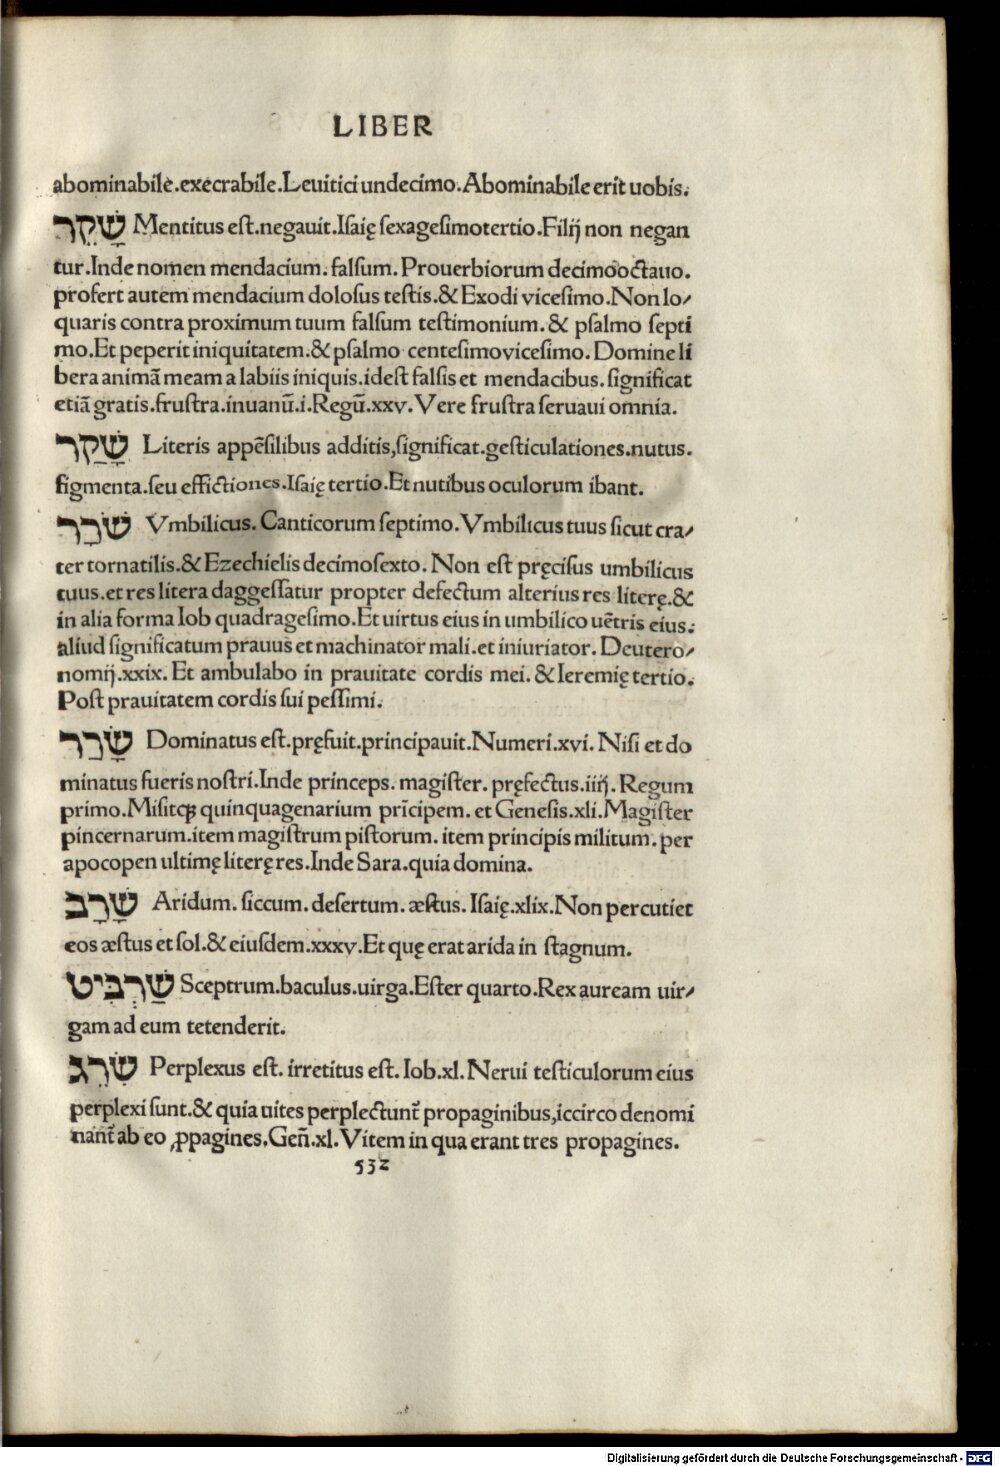 LIBER
abominabile.execrabile.Leuitici undecimo.Abominabile erit uobis.
שָׁקֵר Mentitus est.negauit.Isaię sexagesimotertio.Filij non negan
tur.Inde nomen mendacium.falsum.Prouerbiorum decimooctauo.
profert autem mendacium dolosus testis.& Exodi vicesimo.Non lo⸗
quaris contra proximum tuum falsum testimonium.& psalmo septi
mo.Et peperit iniquitatem.& psalmo centesimovicesimo. Domine li
bera animā meam a labiis iniquis.idest falsis et mendacibus.significat
etiā gratis.frustra.inuanū.i.Regū.xxv.Vere frustra seruaui omnia.
שָׁקַר Literis appēsilibus additis,significat.gesticulationes.nutus.
figmenta.seu effictiones.Isaię tertio.Et nutibus oculorum ibant.
שֹׁרֵר Vmbilicus. Canticorum septimo.Vmbilicus tuus sicut cra⸗
ter tornatilis.& Ezechielis decimosexto. Non est pręcisus umbilicus
tuus.et res litera daggessatur propter defectum alterius res literę.&
in alia forma Iob quadragesimo.Et uirtus eius in umbilico uētris eius.
aliud significatum prauus et machinator mali.et iniuriator. Deutero⸗
nomij.xxix. Et ambulabo in prauitate cordis mei. & Ieremię tertio.
Post prauitatem cordis sui pessimi.
שָׂרַר Dominatus est.pręfuit.principauit.Numeri.xvi. Nisi et do
minatus fueris nostri.Inde princeps. magister. pręfectus.iiij. Regum
primo.Misitqꝫ quinquagenarium prīcipem. et Genesis.xli.Magister
pincernarum.item magistrum pistorum. item principis militum. per
apocopen ultimę literę res.Inde Sara.quia domina.
שָׁרָב Aridum. siccum. desertum. æstus. Isaię.xlix.Non percutiet
eos æstus et sol.& eiusdem.xxxv.Et quę erat arida in stagnum.
שַׁרְבִיט Sceptrum.baculus.uirga.Ester quarto.Rex auream uir⸗
gam ad eum tetenderit.
שֹׂרֵג Perplexus est. irretitus est. Iob.xl. Nerui testiculorum eius
perplexi sunt.& quia uites perplectunt᷑ propaginibus,iccirco denomi
nant᷑ ab eo ꝓpagines.Geñ.xl.Vitem in qua erant tres propagines.
532
Digitalisierung gefördert durch die Deutsche Forschungsgemeinschaft - DFG